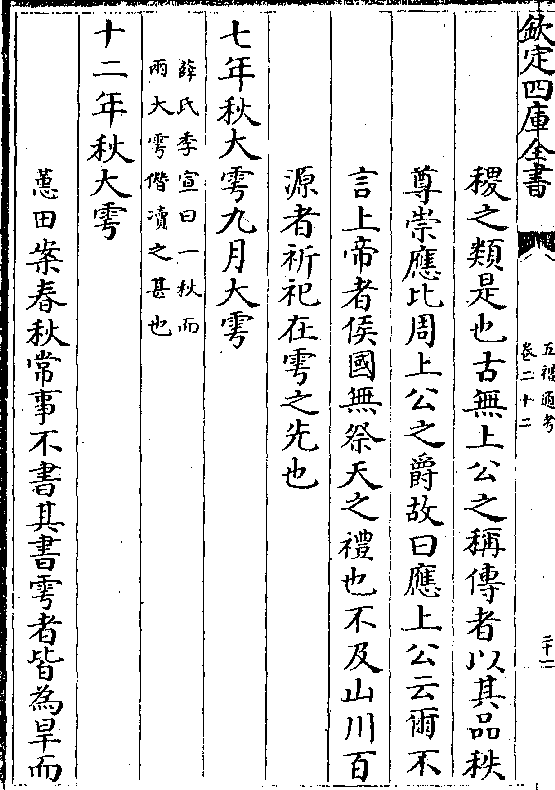 欽定四庫全書
五禮通考
卷二十二
二十二
稷之類是也古無上公之稱傳者以其品秩
尊崇應比周上公之爵故曰應上公云爾不
言上帝者侯國無祭天之禮也不及山川百
源者祈祀在雩之先也
七年秋大雩九月大雩
薛氏季宣曰一秋而
兩大雩僭凟之甚也
十二年秋大雩
蕙田案春秋常事不書其書雩者皆為旱而